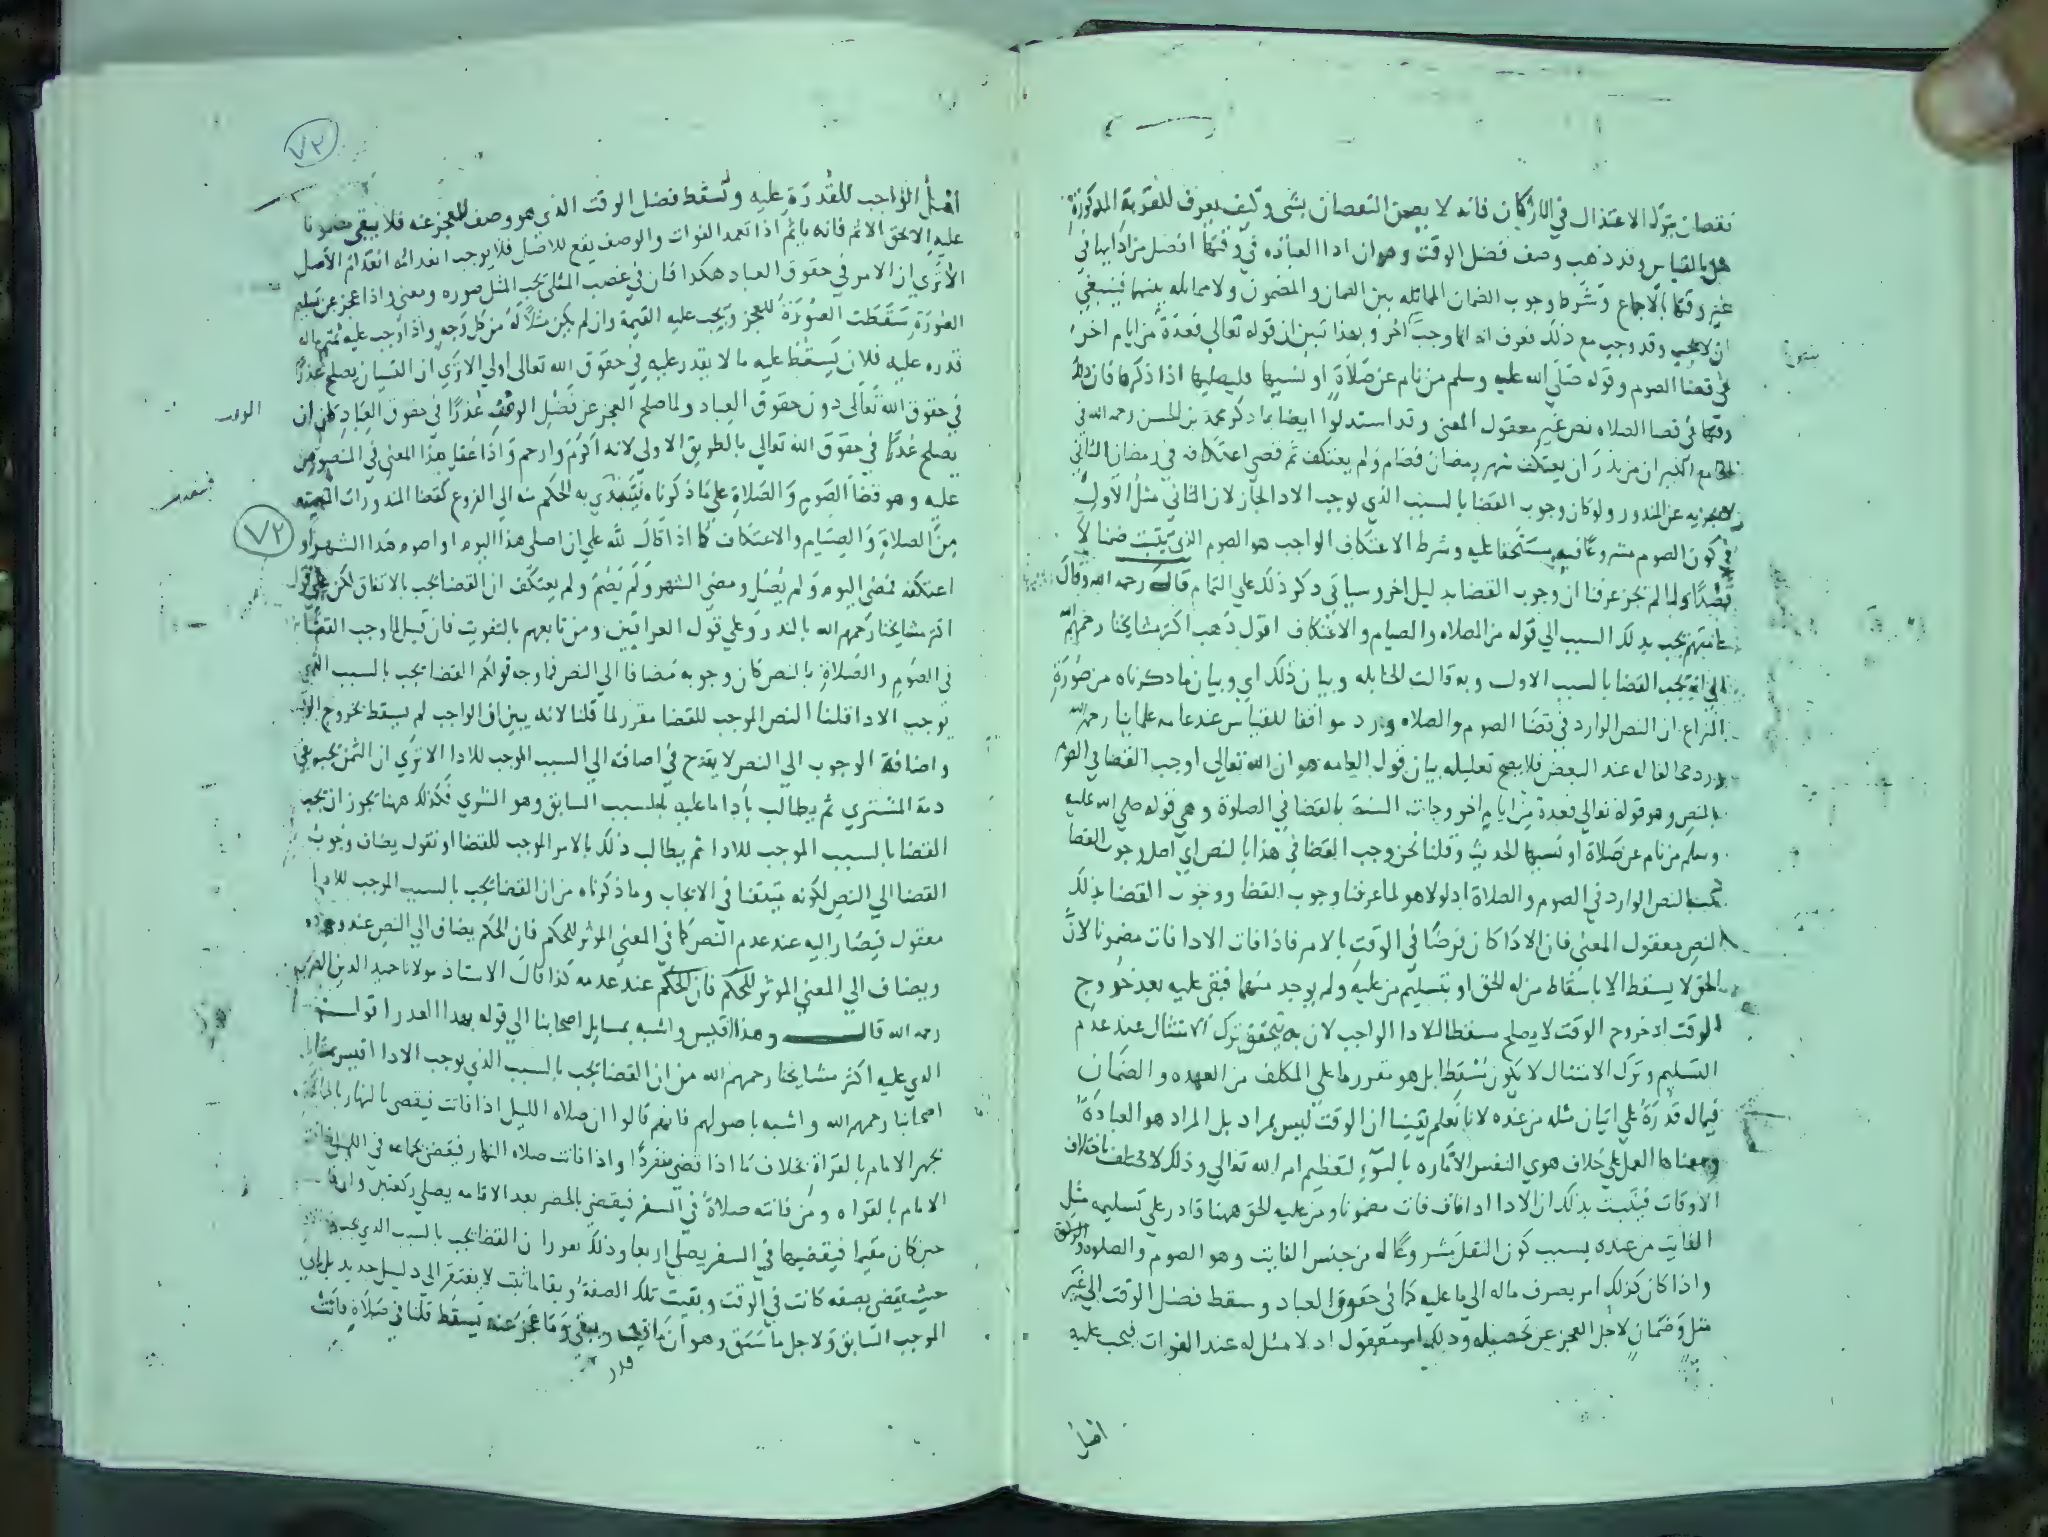 نقصان بترك الاعتدال في الاركان فانه لا يضمن النقصان بشي وكيف يعرف للقربة المذكورة
مثل بالقياس وقد ذهب وصف فضل الوقت وهو ان ادا العباده في وقتها افضل من ادايها في
غير وقتها بالاجماع وشرط وجوب الضمان المماثله بين الضمان والمضمون ولا مماثله بينهما فينبغي
ان لا يجب وقد وجب مع ذلك فعرف انه انما وجب بامر اخر وبهذا تبين ان قوله تعالي فعدة من ايام اخر
في قضا الصوم وقوله صلي الله عليه وسلم من نام عن صلاة او نسيها فليصليها اذا ذكرها فان ذلك
وقتها في قضا الصلاه نص غير معقول المعني وقد استدلوا ايضا بما ذكر محمد بن الحسن رحمه الله في
الجامع الكبير ان من نذر ان يعتكف شهر رمضان فصام ولم يعتكف ثم قضي اعتكافه في رمضان الثاني
لا يجزيه عن المنذور ولو كان وجوب القضا بالسبب الذي يوجب الادا لجاز لان الثاني مثل الاول
في كون الصوم مشروعا فيه مستحقا عليه وشرط الاعتكاف الواجب هو الصوم الذي يثبت ضمنا لا
قصدا ولما لم يجز عرفنا ان وجوب القضا بدليل اخر وسياتي ذكر ذلك علي التمام قال رحمه الله وقال
عامتهم يجب بذلك السبب الي قوله من الصلاه والصيام والاعتكاف اقول ذهب اكثر مشايخنا رحمهم الله
الي انه يجب القضا بالسبب الاول وبه قالت الحنابله وبيان ذلك اي وبيان ما ذكرناه من صورة
النزاع ان النص الوارد في قضا الصوم والصلاه ورد موافقا للقياس عند عامه علمائنا رحمهم الله
ورد مخالفا له عند البعض فلا يصح تعليله بيان قول العامه هو ان الله تعالي اوجب القضا في الصوم
بالنص وهو قوله تعالي فعدة من ايام اخر وجات السنة بالقضا في الصلوة وهي قوله صلي الله عليه
وسلم من نام عن صلاة او نسيها الحديث وقلنا نحن وجب القضا في هذا بالنص اي اصل وجوب القضا
بالنص الوارد في الصوم والصلاة اذ لولاهو لما عرفنا وجوب القضا ووجوب القضا بذلك
النص معقول المعني فان الادا كان فرضا في الوقت بالامر فاذا فات الادا فات مضمونا لان
الحق لا يسقط الا باسقاط من له الحق او بتسليم من عليه ولم يوجد منهما فبقي عليه بعد خروج
الوقت اذ خروج الوقت لا يصلح مسقطا للادا الواجب لان به يتحقق ترك الامتثال عند عدم
التسليم وترك الامتثال لا يكون مسقطا بل هو تقرر ما علي المكلف من العهده والضمان
فيما له قدرة علي اتيان مثله من عنده لانا نعلم يقينا ان الوقت ليس بمراد بل المراد هو العبادة
ومعناها العمل علي خلاف هوي النفس الاماره بالسوء لتعظيم امر الله تعالي وذلك لا يختلف باختلاف
الاوقات فيثبت بذلك ان الادا اذا فات فات مضمونا ومن عليه الحق ههنا قادر علي تسليم مثل
الفايت من عنده بسبب كون النفل مشروعا له من جنس الفايت وهو الصوم والصلوه
واذا كان كذلك امر بصرف ماله الي ما عليه كما في حقوق العباد وسقط فضل الوقت الي غير
مثل وضمان لاجل العجز عن تحصيله وذلك امر معقول اذ لا مثل له عند الفوات فيجب عليه
اصل
٧٢
اصل الواجب للقدرة عليه وتسقط فضل الوقت الذي هو وصف للعجز عنه فلا يبقي مضمونا
عليه الا بحق الاثم فانه ياثم اذا تعمد الفوات والوصف يقع للاصل فلا يوجب انعدامه انعدام الاصل
الا تري ان الامر في حقوق العباد هكذا فان في غصب المثلي يجب المثل صوره ومعني واذا عجز عن تسليم
الصورة سقطت الصورة للعجز ويجب عليه القيمة وان لم يكن مثلا له من كل وجه واذا وجب عليه
قدره عليه فلان يسقط عليه ما لا يقدر عليه في حقوق الله تعالي اولي الا تري ان النسيان يصلح عذرا
في حقوق الله تعالي دون حقوق العباد ولما صلح العجز عن فضل الوصف عذرا في حقوق العباد كان ان
الوقت
يصلح عذرا في حقوق الله تعالي بالطريق الاولي لانه اكرم وارحم واذا عقل هذا المعني في المنصوص
عليه وهو قضا الصوم والصلاة علي ما ذكرناه فيتعدي به الحكم منه الي الفروع كقضا المنذورات المعينه
٧٢
من الصلاة والصيام والاعتكاف كما اذا قال لله علي ان اصلي هذا اليوم او اصوم هذا الشهر او
اعتكفه فمضي اليوم ولم يصل ومضي الشهر ولم يصم ولم يعتكف ان القضا يجب بالاتفاق لكن علي قول
اكثر مشايخنا رحمهم الله بالنذر وعلي قول العراقيين ومن تابعهم بالتفويت فان قيل لما وجب القضا
في الصوم والصلاة بالنص كان وجوبه مضافا الي النص فما وجه قولكم القضا يجب بالسبب الذي
يوجب الادا قلنا النص الموجب للقضا مقرر لما قلنا لانه يبين ان الواجب لم يسقط بخروج الوقت
واضافة الوجوب الي النص لا يقدح في اضافته الي السبب الموجب للادا الا تري ان الثمن يجب في
ذمة المشتري ثم يطالب بادا ما عليه بالسبب السابق وهو الشري فكذلك ههنا يجوز ان يجب
القضا بالسبب الموجب للادا ثم يطالب ذلك بالامر الموجب للقضا او نقول يضاف وجوب
القضا الي النص لكونه متيقنا في الايجاب وما ذكرناه من ان القضا يجب بالسبب الموجب للادا
معقول فيصار اليه عند عدم النص كما في المعني الموثر للحكم فان الحكم يضاف الي النص عند وجوده
ويضاف الي المعني الموثر للحكم فان الحكم عند عدمه كذا قال الاستاذ مولانا حميد الدين الضرير
رحمه الله قال وهذا اقيس واشبه بمسايل اصحابنا الي قوله بهذا العدد اقول
الذي عليه اكثر مشايخنا رحمهم الله من ان القضا يجب بالسبب الذي يوجب الادا اقيس بمسايل
اصحابنا رحمهم الله واشبه باصولهم فانهم قالوا ان صلاه الليل اذا فاتت فيقضي بالنهار بالجماعة
يجهر الامام بالقراة بخلاف ما اذا قضي منفردا واذا فاتت صلاه النهار فيقضي بجماعه في الليل
الامام بالقراه ومن فاتته صلاة في السفر فيقضي بالحضر بعد الاقامه يصلي ركعتين واذا
حين كان مقيما فيقضيها في السفر يصلي اربعا وذلك يقرر ان القضا يجب بالسبب الذي يجب
حيث يقضي بصفه كانت في الوقت وبقيت تلك الصفة وبقا ما ثبت لا يفتقر الي دليل جديد بل
الموجب السابق ولاجل ما سبق وهو ان ما يبقي وما عجز عنه يسقط قلنا في صلاة فاتت
قدر